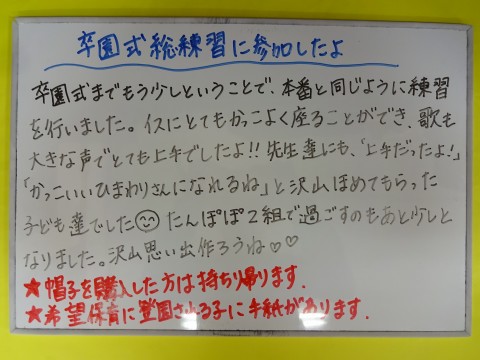 卒園式総練習に参加したよ
卒園式までもう少しということで、本番と同じように練習
を行いました。イスにとてもかっこよく座ることができ、歌も
大きな声でとても上手でしたよ!! 先生達にも、「上手だったよ!」
「かっこいいひまわりさんになれるね」と沢山ほめてもらった
子ども達でした☺ たんぽぽ2組で過ごすのもあと少しと
なりました。沢山思い出作ろうね♡♡
★帽子を購入した方は持ち帰ります.
★希望保育に登園される子に手紙があります.